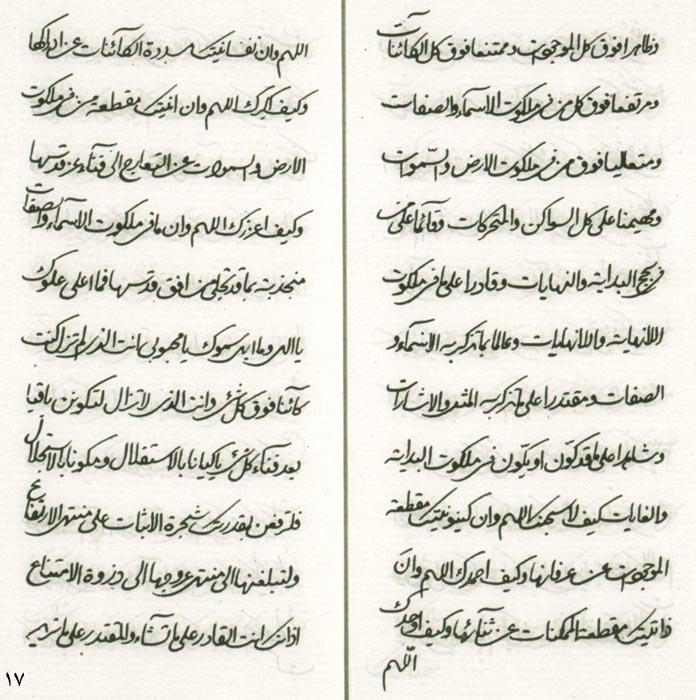 وظاهرا فوق كل الموجودات وممتنعا فوق كل الكائنات
ومرتفعا فوق كل من في ملكوت الاسمآء والصفات
ومتعاليا فوق من في ملكوت الارض والسّموات
ومهيمنا على كل السواكن والمتحركات وقآئما على من
في البداية والنهايات وقادرا على ما في ملكوت
اللانهاية واللانهايات وعالما بما تذكر به الاسمآء و
الصفات ومقتدرا على ما تذكر به المثل والاشارات
وشاهدا على ما قد كوّن او يكّون في ملكوت البداية
والغايات كيف لاسبحنك اللهم وان كينونيتك مقطعة
الموجودات عن عرفانها وكيف احمدك اللهم وانَ
ذاتيتك مقطعة الممكنات عن ثنآئها وكيف اوحدك
اللّهم
اللهم وان نفسانيتك مسددة الكآئنات عن ادراكها
وكيف اكبرك اللهم وان انيتك مقطعة من في ملكوت
الارض والسموات عن التعارج الى فنآء عز قدسها
وكيف اعززك اللهم وان ما في ملكوت الاسمآء والصفات
منجذبة بما قد تجلى من افق قدسها فما اعلى علوك
يا الهي وما ابهى سموك يا محبوبي بانت الذي لم تزل كنت
كآئنا فوق كل شئ وانت الذي لا تزال لتكونن باقيا
بعد فنآء كل شئ يا كيانا بالاستقلال ومكونا بالاستجلال
فلترفعن بقدرتك شجرة الاثبات على منتهى الارتفاع
ولتبلغنها الى منتهى عروجها الى ذروة الامتناع
اذ انك انت القادر على ما تشآء والمقتدر على ما تريد
١٧